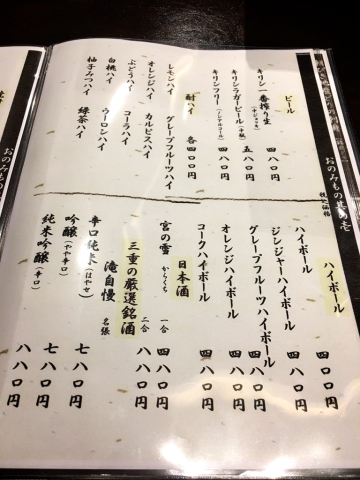 おのみもの其の壱
税込価格
ビール
キリン一番搾り生(中ジョッキ) 四八〇円
キリンラガービール(中瓶) 五八〇円
キリンフリー(ノンアルコール) 四〇〇円
酎ハイ 各四〇〇円
レモンハイ グレープフルーツハイ
オレンジハイ カルピスハイ
ぶどうハイ コーラハイ
白桃ハイ ウーロンハイ
柚子みつハイ 緑茶ハイ
ハイボール
ハイボール 四〇〇円
ジンジャーハイボール 四八〇円
グレープフルーツハイボール 四八〇円
オレンジハイボール 四八〇円
コークハイボール 四八〇円
日本酒
宮の雪 からくち 一合 四八〇円
二合 八八〇円
三重の厳選銘酒
滝自慢 名張
辛口純米(はやせ) 七八〇円
吟醸(やや辛口) 七八〇円
純米吟醸(辛口) 八八〇円
おのみもの